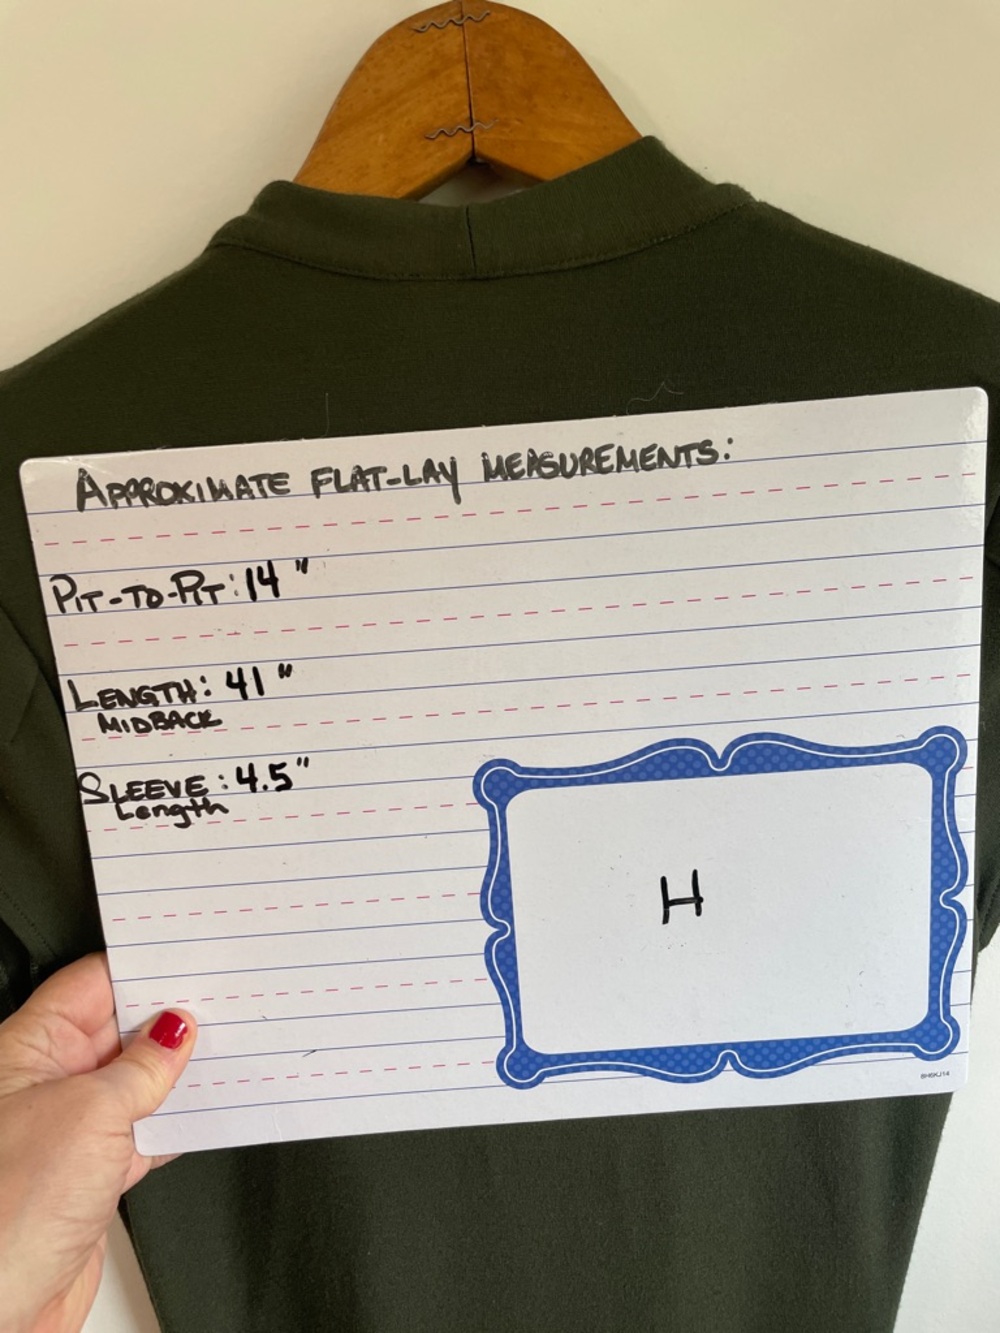 APPROXIMATE FLAT-LAY MEASUREMENTS:
PIT-TO-PIT: 14"
LENGTH: 41"
MIDBACK
SLEEVE: 4.5"
Length
H
8H6KJ14